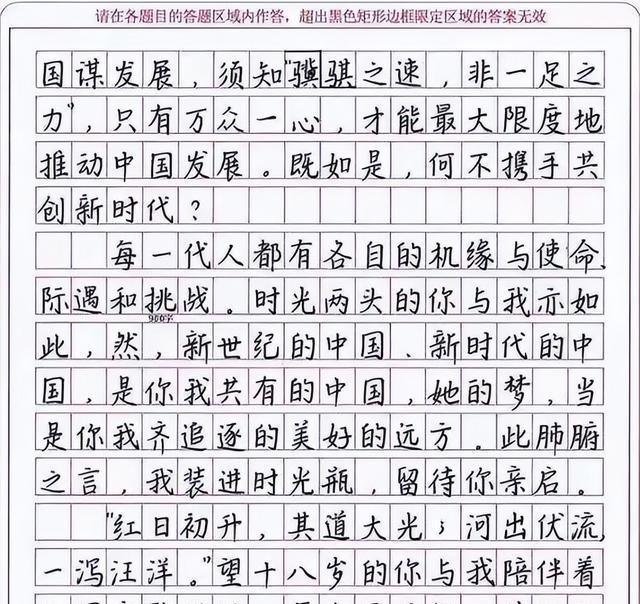 请在各题目的答题区域内作答，超出黑色矩形边框限定区域的答案无效
国谋发展，须知“骥骐之速，非一足之
力”，只有万众一心，才能最大限度地
推动中国发展。既如是，何不携手共
创新时代？
每一代人都有各自的机缘与使命、
际遇和挑战。时光两头的你与我亦如
900字
此，然，新世纪的中国、新时代的中
国，是你我共有的中国，她的梦，当
是你我齐追逐的美好的远方。此肺腑
之言，我装进时光瓶，留待你亲启。
“红日初升，其道大光；河出伏流，
一泻汪洋。”望十八岁的你与我陪伴着